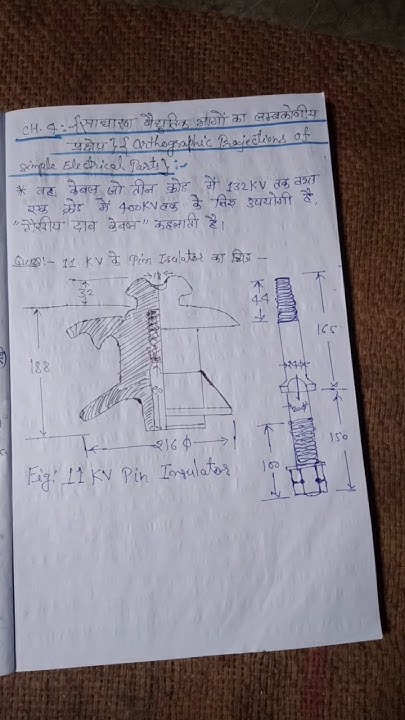 CH. 4:- {साधारण वैद्युतिक भागों का लम्बकोणीय
प्रक्षेप} { Orthographic Projections of
simple Electrical Parts} :-
* वह केबल जो तीन कोर में 132KV तक तथा
एक कोर में 400KV तक के लिए उपयोगी है,
"गैसीय दाब केबल" कहलाती है।
:- 11 KV के Pin Insulator का चित्र -
18
32
188
216 Φ
44
165
150
100
Fig: 11 KV Pin Insulator